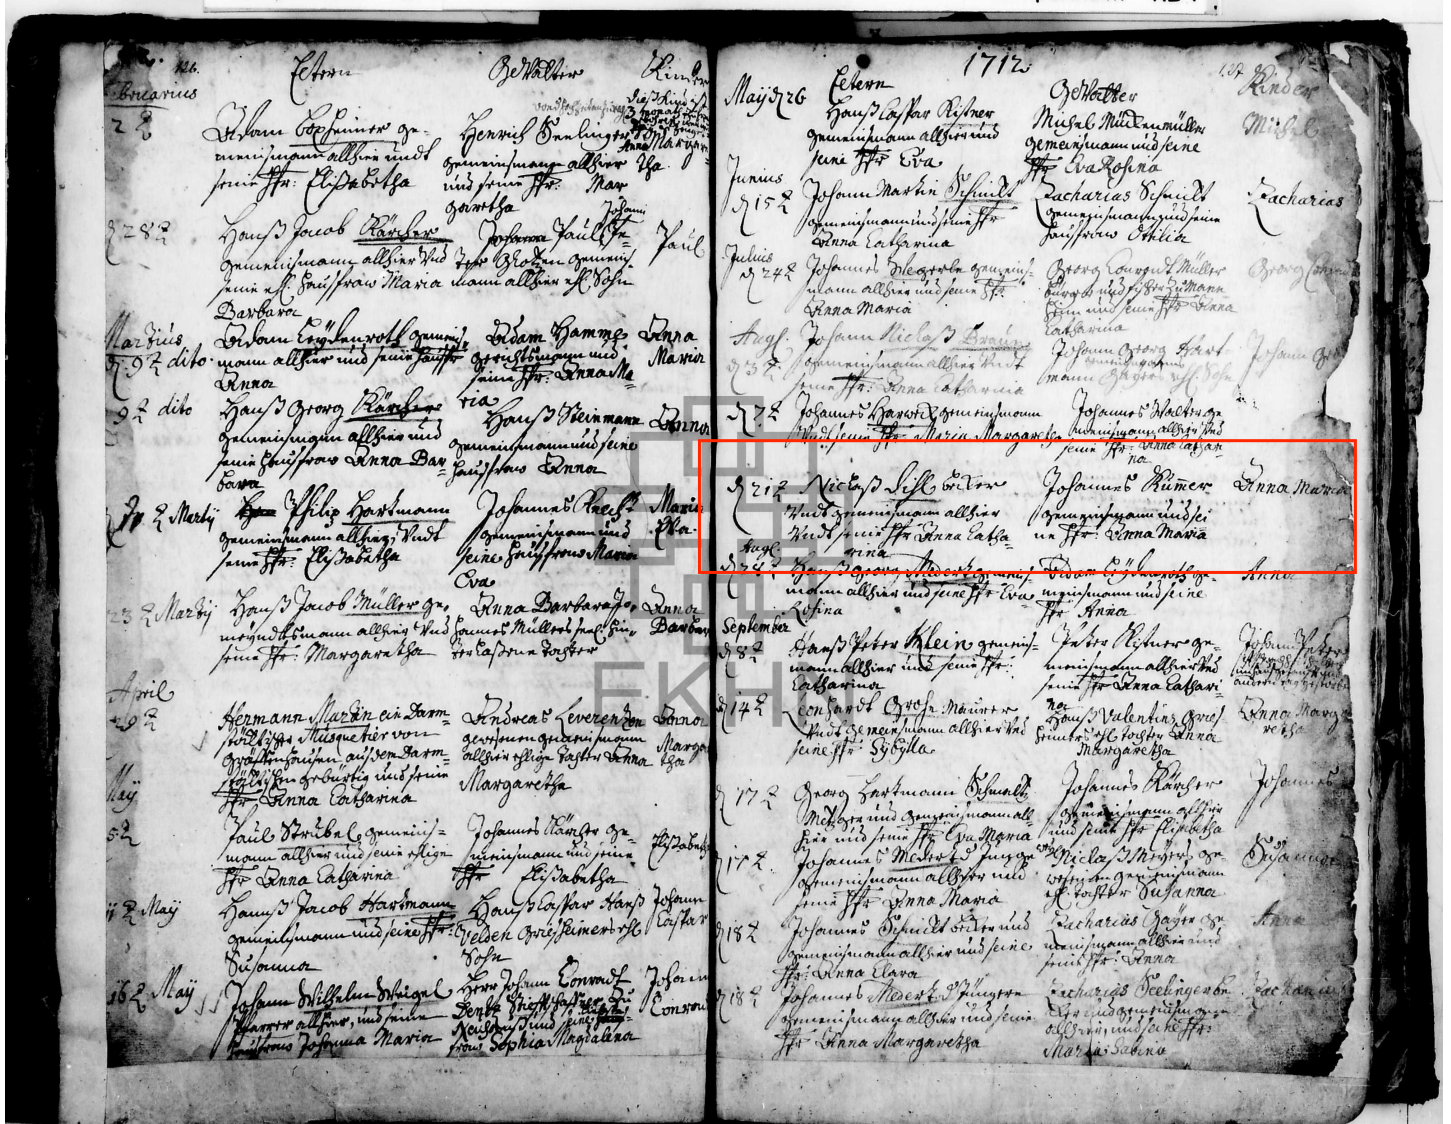 126.
Eltern
Gevatter
Kinder
Adam boxheimer ge-
meinsmann allhier undt
seine fr: Elisabetha
Henrich Seelinger
gemeinsmann allhier
und seine fr: Mar
garetha
Anna Margare-
tha
28
Hanß Jacob Kärcher
gemeinsmann allhier Vnd
seine ehl. haussfraw Maria
Barbara
Johann Paul
gemeins-
mann allhier ehl. Sohn
Paul
Martius
9 dito
Adam Leydenroth gemeins
mann allhier und seine haussfr
Anna
Adam Hamm
gerichtsmann und
seine fr: Anna Ma-
ria
Anna
Maria
9 dito
Hanß Georg Kärcher
gemeinsmann allhier und
seine haussfraw Anna Bar-
bara
Hanß Steinmann
gemeinsmann und seine
haussfraw Anna
Anna
Marty
Philip Hartmann
gemeinsmann allhier Vndt
seine fr: Elisabetha
Johannes Knecht
gemeinsmann und
seine haussfraw Maria
Eva
Maria
Eva.
23 Marty
Hanß Jacob Müller ge-
meyndtsmann allhier Vnd
seine fr: Margaretha
Anna Barbara Jo-
hannes Müllers seel. hin-
terlassene tochter
Anna
Barbara
April
29
Hermann Martin ein Darm-
stättischer Musquetier von
Gräffenhausen auß dem Darm-
stättischen gebürtig und seine
fr: Anna Catharina
Andreas Leverenden
gewesenen gemeinsmann
allhier ehlige tochter Anna
Margaretha
Anna
Marga
tha
May
5
Paul Strubel, gemeins-
mann allhier und seine ehlige
fr: Anna Catharina
Johannes Kärcher ge-
meinsmann und seine
fr: Elisabetha
Elisabeth
11 May
Hannß Jacob Hartmann
gemeinsmann und seine fr:
Susanna
Hanß Caspar Hanß
Velden Griesheimers ehl
Sohn
Johann
Caspar
16 May
Johann Wilhelm Weigel
Pfarrer allhier, und seine
haussfraw Johanna Maria
Herr Johann Conradt
fraw Sophia Magdalena
Johann
Conrad
1712
127
Eltern
Gevatter
Kinder
May d 26
Hanß Caspar Kistner
gemeinsmann allhier und
seine fr: Eva
Michel Mückenmüller
gemeinsmann und seine
fr: Eva Rosina
Michel
Junius
d 15
Johann Martin Schmidt
gemeinsmann und seine fr
Anna Catharina
Zacharias Schmidt
gemeinsmann und seine
haussfraw Otilia
Zacharias
Julius
d 24
Johannes Megerle gemeins-
mann allhier und seine fr:
Anna Maria
Georg Conradt Müller
burger und fischer zu Mann
heim und seine fr: Anna
Catharina
Georg Conrad
Augl.
d 3
Johann Niclaß Braun
gemeinsmann allhier Vndt
seine fr: Anna Catharina
Johann Georg Hart-
mann
Johann Geo
d 7
Johannes Harweck gemeinsmann
Vndt seine fr: Maria Margaretha
Johannes Walter ge
meinsmann allhier Vnd
seine fr: Anna Cathari
na
d 21
Niclaß Dihl becker
Vndt gemeinsmann allhier
Vndt seine fr: Anna Catha-
rina
Johannes Kumer
gemeinsmann und sei
ne fr: Anna Maria
Anna Maria
Augl.
d 28
Hanß Georg Medert gemeins-
mann allhier und seine fr: Eva
Rosina
Adam Leydenroth ge-
meinsmann und seine
fr: Anna
Anna
September
d 8
Hanß Peter Klein gemeins-
mann allhier und seine fr:
Catharina
Peter Kistner ge-
meinsmann allhier Vnd
seine fr: Anna Cathari-
na
Johann Peter
d 14
Leonhardt Grohe Maurer
Vndt gemeinsmann allhier Vnd
seine fr: Sybylla
Hanß Valentins Gries-
heimers ehl. tochter Anna
Margaretha
Anna Marga
retha
d 17
Georg Hartmann Schmaltz
Metzger und gemeinsmann all-
hier und seine fr: Eva Maria
Johannes Kärcher
gemeinsmann allhier
und seine fr: Elisabetha
Johannes
d 17
Johannes Medert d Junge
gemeinsmann allhier und
seine fr: Anna Maria
Niclaß Meyers ge
wesenen gemeinsmann
ehl. tochter Susanna
Susanna
d 18
Johannes Schmidt becker und
gemeinsmann allhier und seine
fr: Anna Clara
Zacharias Gayer ge
meinsmann allhier und
seine fr: Anna
Anna
d 18
Johannes Medert d Jüngere
gemeinsmann allhier und seine
fr: Anna Margaretha
Zacharias Seelinger be
cker und gemeinsmann
allhier, und seine fr:
Maria Sabina
Zacharias
EKH